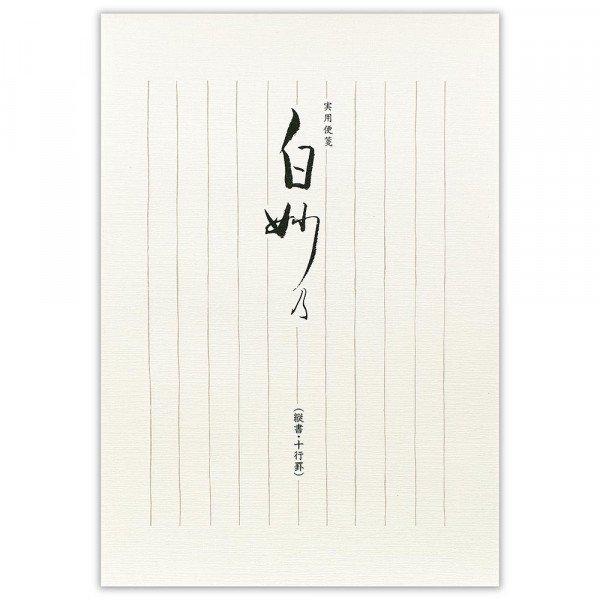 実用便箋
白妙乃
(縦書・十行罫)